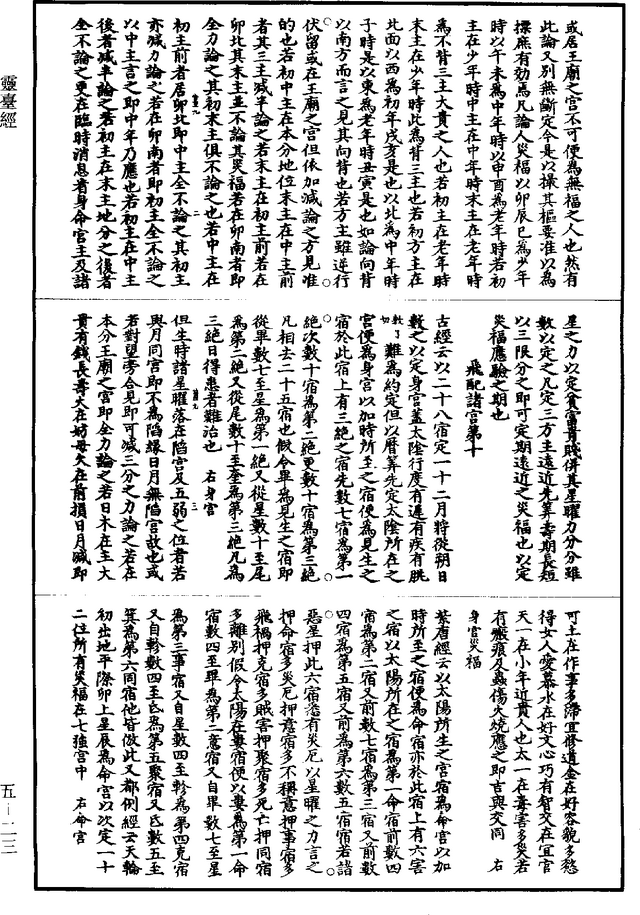 或居王廟之宮不可便為無福之人也然有
此論又別無斷定今是以操其樞要准以為
摽庶有効焉凡論人災福以卯辰巳為少年
時以午未為中年時以申酉為老年時若初
主在少年時中主在中年時末主在老年時
為不背三主大貴之人也若初主在老年時
末主在少年時此為背三主也若初方主在
此面以西為初年戌亥是也以北為中年時
子時是以東為老年時丑寅是也如論向背
以南方而言之見其向背也若方主雖逆行
伏留或在王廟之宮但依加減論之方見准
的也若初中主在本分地位末主在中主前
者其三主減半論之若末主在初主前若在
卯北其末主並不論其災福若在卯南者即
全力論之其初末主俱不論之也若中主在
初主前者居卯北即中主全不論之其初主
亦減力論之若在卯南者即初主全不論之
以中主言之即中年乃應也若初主在中主
後者減半論之若初主在末主地分之後者
全不論之更在臨時消息者身命宮主及諸
星之力以定貧富貴賤併其星曜力分分雖
數以定之凡定三方主遠近先筭壽期長短
以三限分之即可定期遠近之災福也以定
災福應驗之期也
飛配諸宮第十
古經云以二十八宿定一十二月將從朔日
數之以定身宮蓋太陰行度有遲有疾有朓
難為約定但以曆筭先定太陰所在之
宮便為身宮以加時所至之宿便為見生之
宿於此宿上有三絶之宿先數七宿為第一
絶次數十宿為第二絶更數十宿為第三絶
凡相去二十五宿也假令畢為見生之宿即
從畢數七至星為第一絶又從星數十至尾
為第二絶又從尾數十至奎為第三絶凡為
三絶日得患者難治也 右身宮
但生時諸星曜落在陷宮及五弱之位者若
與月同宮即不為陷緣日月無陷宮故也或
若對望旁合見即可減三分之力論之若在
本分王廟之宮即全力論之若日木在主大
貴有錢長壽火在妨母久在前損日月減即
可土在作事多滯宜修道金在好容貌多愁
得女人愛慕水在好文心巧有智交在宜官
天一在小年近貴人也太一在毒害多災若
有瘢痕及蟲傷火燒應之即吉與交同 右
身宮災福
紫唐經云以太陽所主之宮宿為命宮以加
時所至之宿便為命宿亦於此宿上有六害
之宿以太陽所在之宿為第一命宿前數四
宿為第二宿又前數七宿為第三宿又前數
四宿為第五宿又前為第六數五宿宿若諸
惡星押此六宿悉有災厄以星曜之力言之
押命宿多災厄押意宿多不稱意押事宿多
飛禍押克宿多賊害押聚宿多死亡押同宿
多離別假令太陽在婁宿便以婁為第一命
宿數四至畢為第二意宿又自畢數七至星
為第三事宿又自星數四至軫為第四克宿
又自軫數四至氐為第五聚宿又氐數五至
箕為第六同宿他皆倣此又都例經云天輪
初出地平際卯上星辰為命宮以次定一十
二位所有災福在七強宮中 右命宮
靈臺經
五－二三